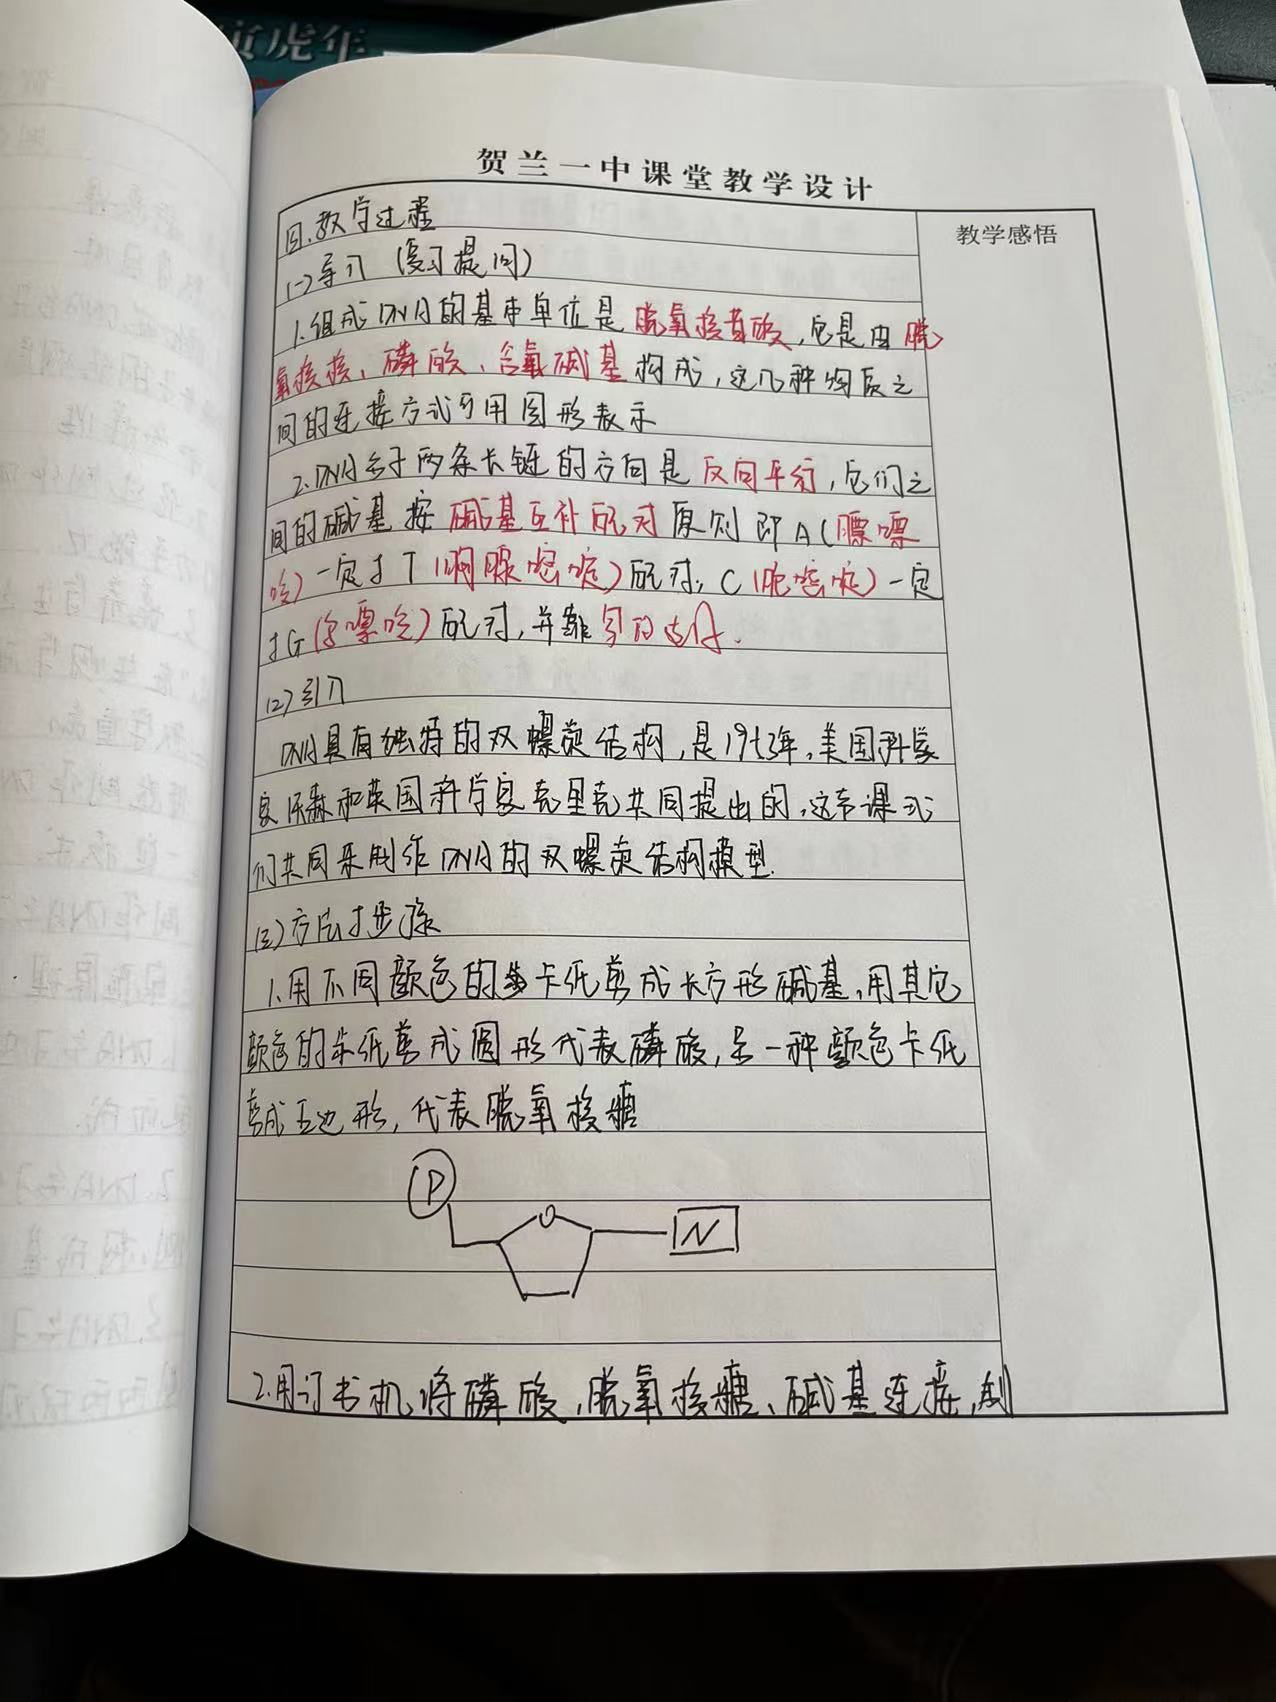 寅虎年
贺兰一中课堂教学设计
教学感悟
四.教学过程
(一)导入 (复习提问)
1.组成DNA的基本单位是脱氧核苷酸,它是由脱
氧核糖、磷酸、含氧碱基构成,这几种物质之
间的连接方式可用图形表示
2.DNA分子两条长链的方向是反向平行,它们之
间的碱基按碱基互补配对原则即A(腺嘌
呤)一定与T(胸腺嘧啶)配对;C(胞嘧啶)一定
与G(鸟嘌呤)配对,并靠氢键
(2)引入
DNA具有独特的双螺旋结构,是1953年,美国科学
家沃森和英国科学家克里克共同提出的,这节课我
们共同来制作DNA的双螺旋结构模型.
(三)方法与步骤
1.用不同颜色的卡纸剪成长方形碱基,用其它
颜色的卡纸剪成圆形代表磷酸,另一种颜色卡纸
剪成五边形,代表脱氧核糖
P
O
N
2.用订书机将磷酸,脱氧核糖、碱基连接,制